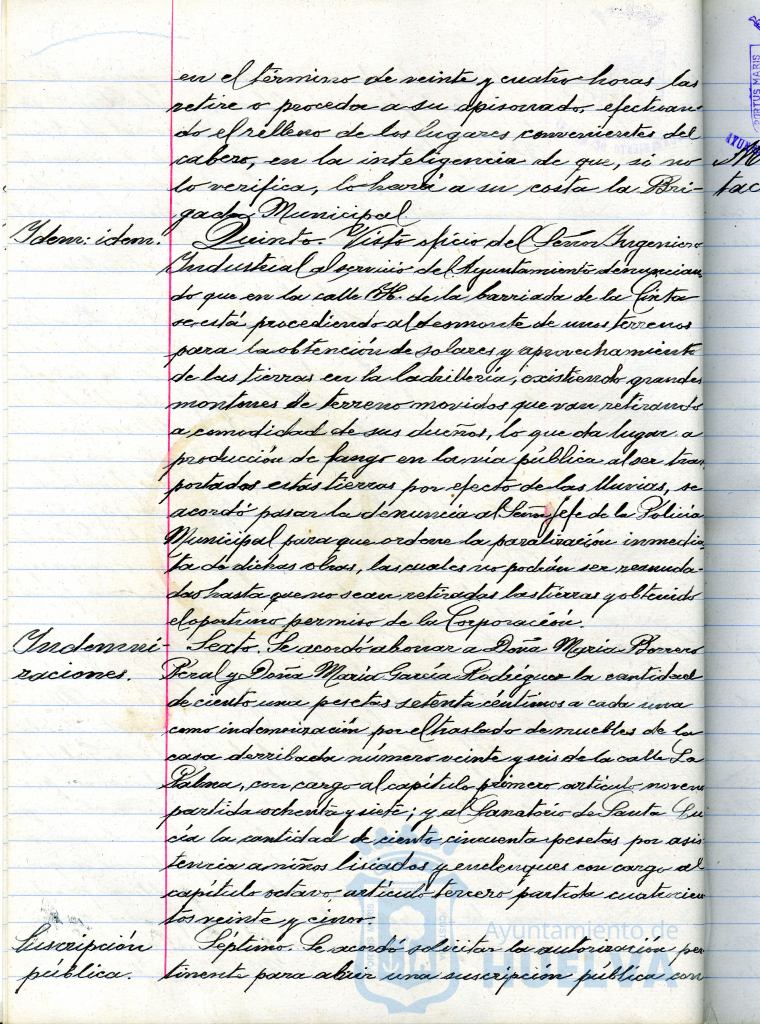 en el término de veinte y cuatro horas las
retire o proceda a su apisonado, efectuan-
do el relleno de los lugares convenientes del
cabezo, en la inteligencia de que, si no
lo verifica, lo hará a su costa la Bri-
gada Municipal.
Idem: idem. Quinto. Visto oficio del Señor Ingeniero
Industrial al servicio del Ayuntamiento denuncian
do que en la calle H. de la barriada de la Cinta
se está procediendo al desmonte de unos terrenos
para la obtención de solares y aprovechamiento
de las tierras en la ladrillería, existiendo grandes
montones de terreno movidos que van retirando
a comodidad de sus dueños, lo que da lugar a
producción de fango en la vía pública al ser trans
portados estas tierras por efecto de las lluvias, se
acordó pasar la denuncia al Señor Jefe de la Policía
Municipal para que ordene la paralización inmedia-
ta de dichas obras, las cuales no podrán ser reanuda-
das hasta que no sean retiradas las tierras y obtenido
el oportuno permiso de la Corporación.
Indemni- Sexto. Se acordó abonar a Doña Maria Borrero
zaciones. Peral y Doña María García Rodríguez la cantidad
de ciento una pesetas setenta céntimos a cada una
como indemnización por el traslado de muebles de la
casa derribada número veinte y seis de la calle La
Palma, con cargo al capítulo primero artículo noveno
partida ochenta y siete; y al Sanatorio de Santa Lu
cía la cantidad de ciento cincuenta pesetas por asis
tencia a niños lisiados y enclenques con cargo al
capítulo octavo artículo tercero partida cuatrocien
tos veinte y cinco.
Suscripción Séptimo. Se acordó solicitar la autorización per
pública. tinente para abrir una suscripción pública con
Ayuntamiento de
HUELVA
PORTUS MARIS